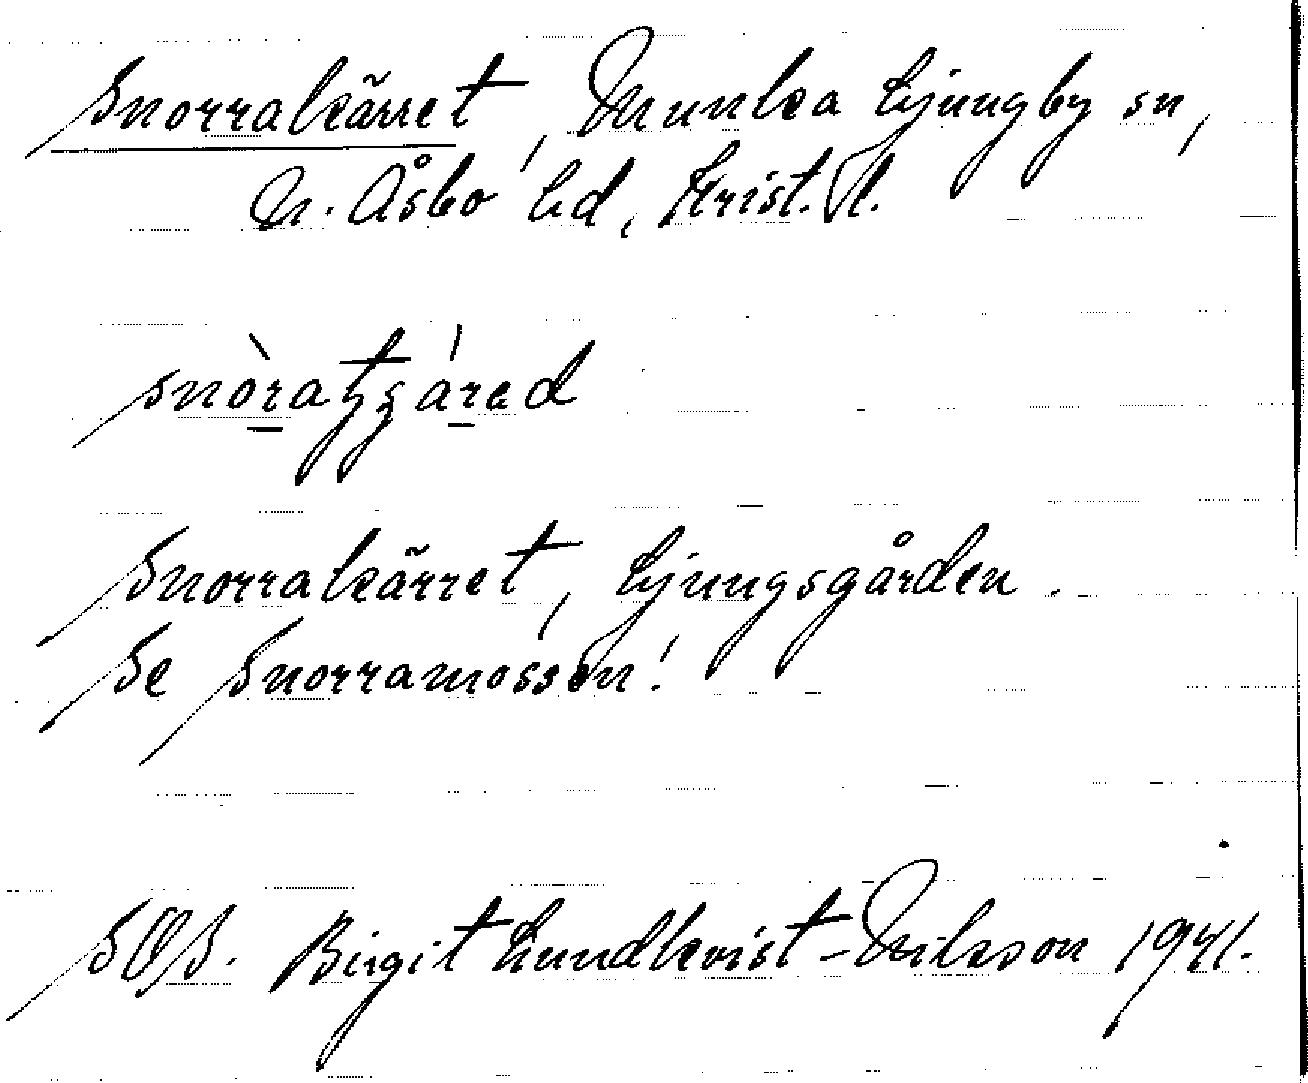 Snorrakärret, Munka Ljungby sn,
N. Åsbo hd, Krist. l.
Snorrakärret, Ljungsgården.
Se Snorramossen!
Birgit Lundkvist-Nilsson 1941.